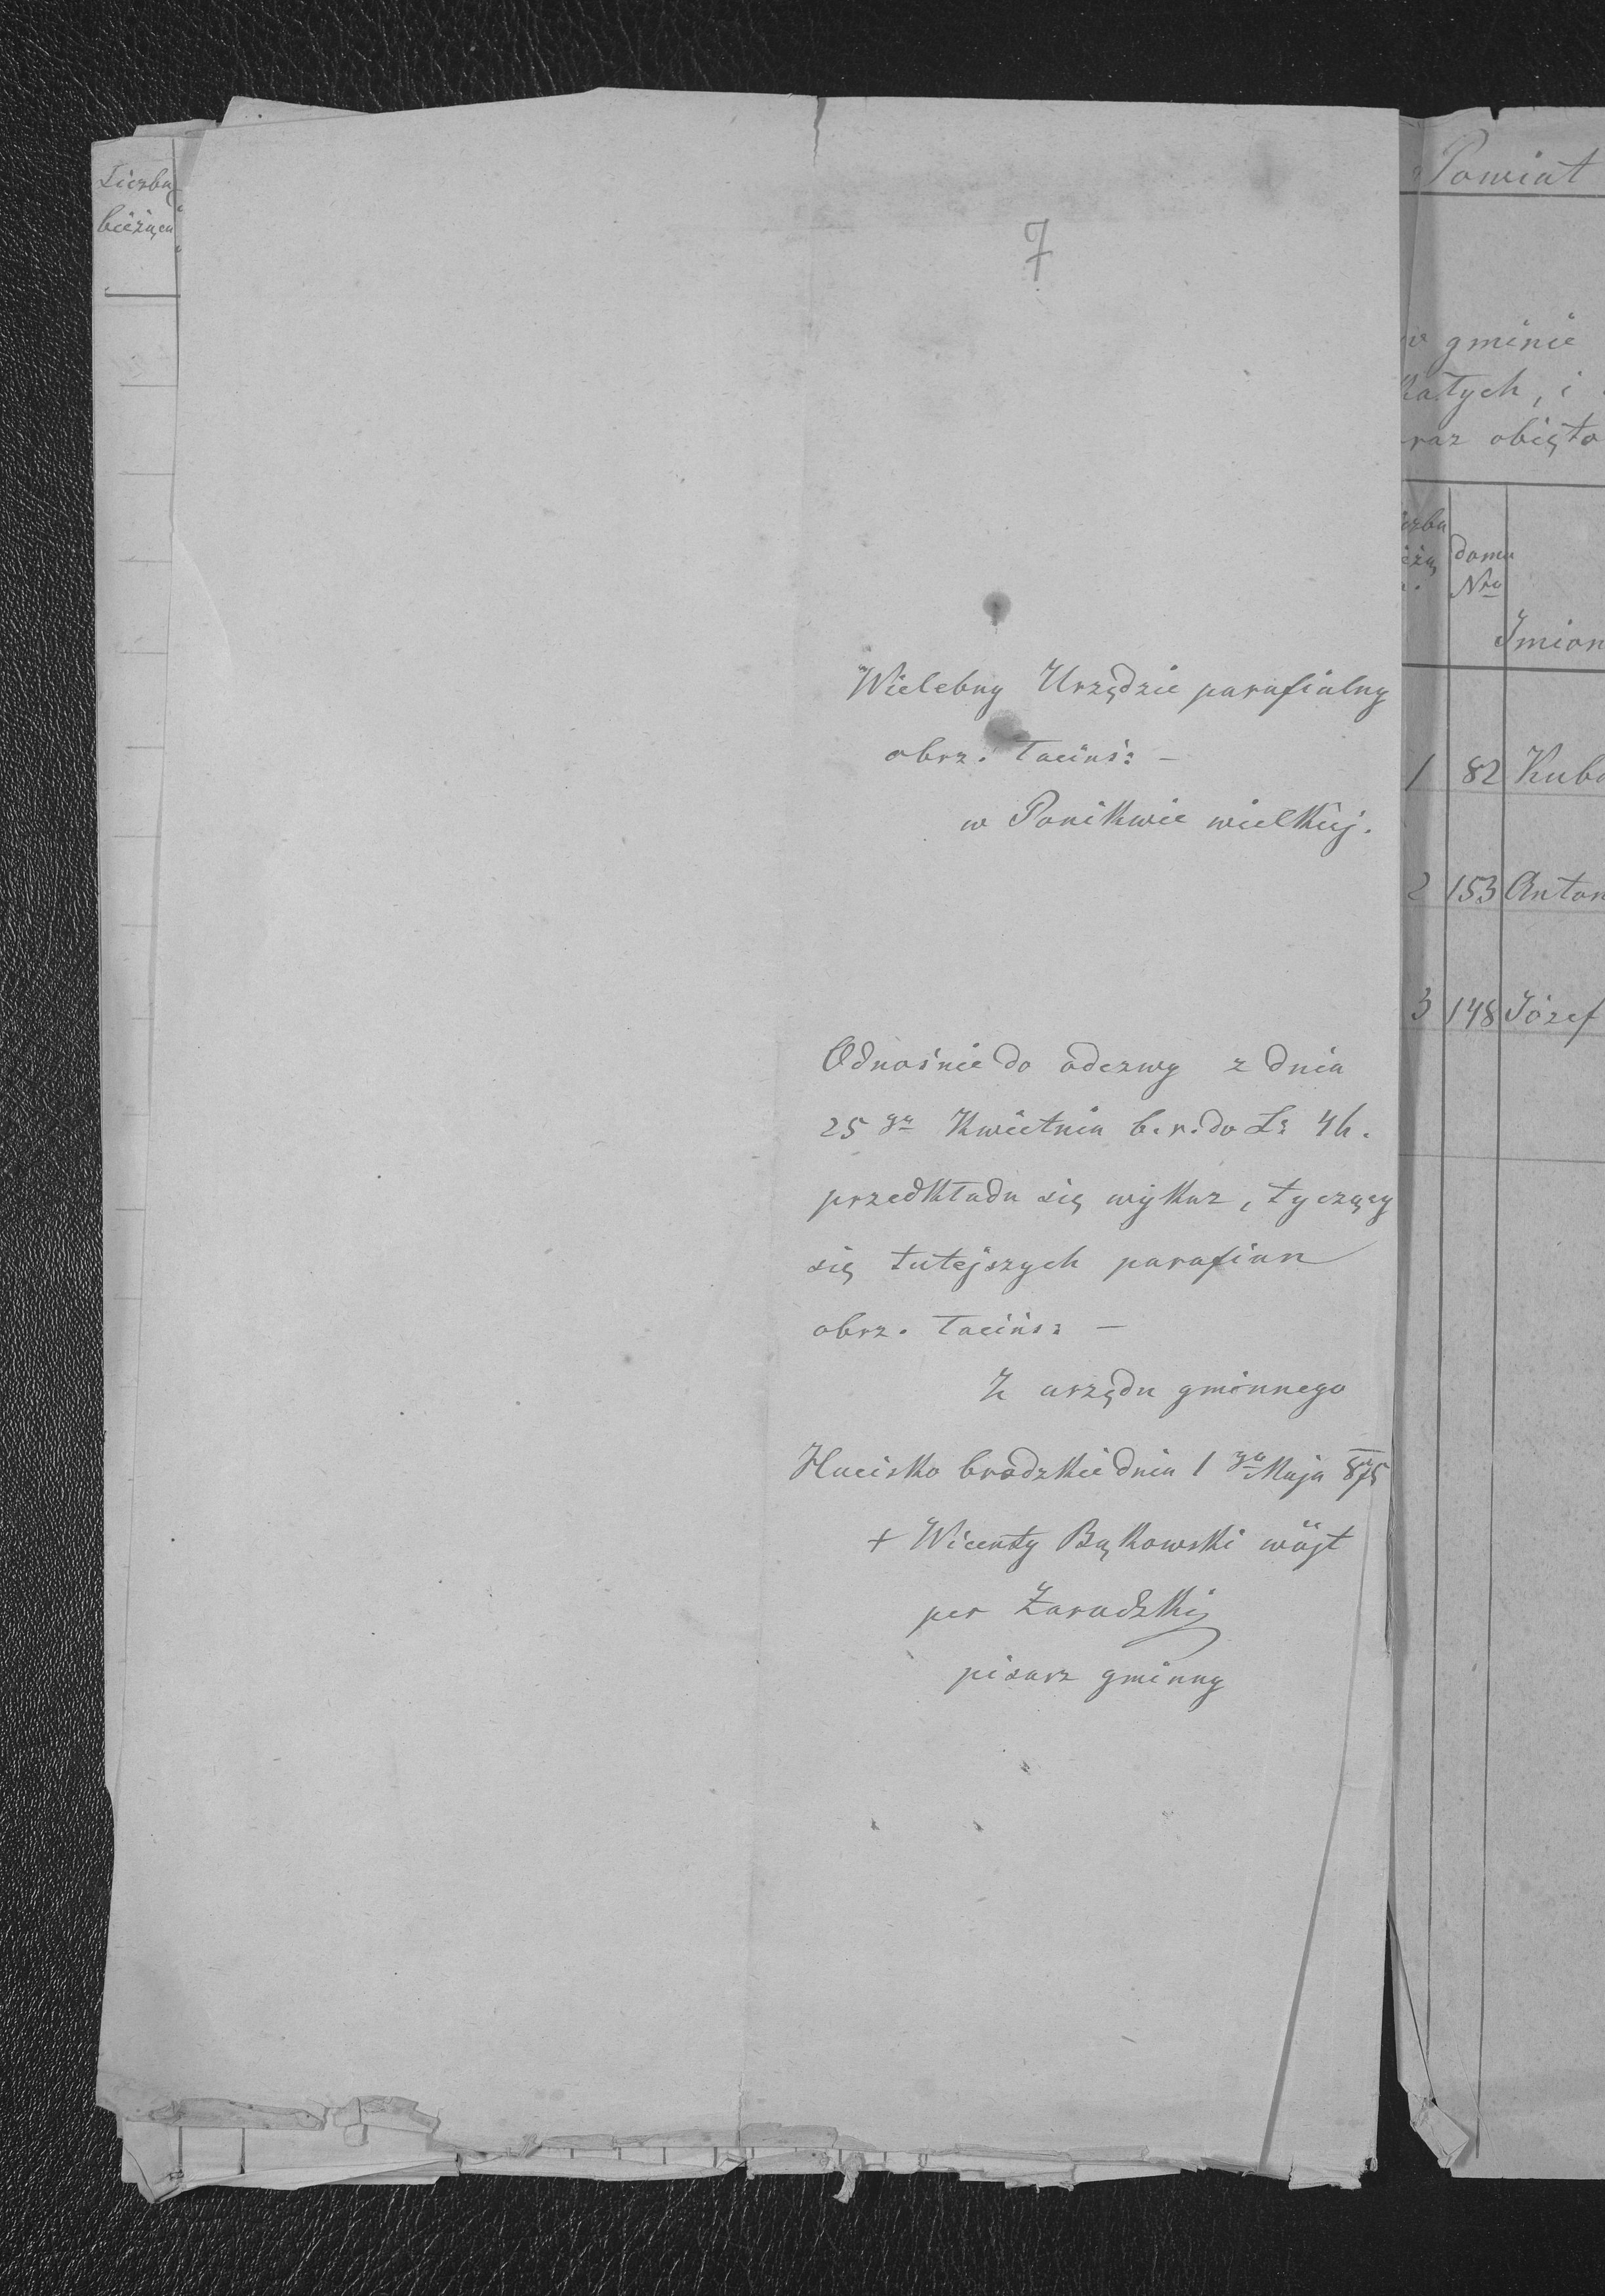 Liczba
bieżąca
7
Wielebny Urzędzie parafialny
obrz. łacińs: –
w Ponikwie wielkiej.
Odnośnie do odezwy z dnia
25 go Kwietnia b.r. do L:
przedkłada się wykaz, tyczący
się tutejszych parafian
obrz. łacińs: –
Z urzędu gminnego
Hucisko brodzkie dnia 1 go Maja 875
+ Wicenty Bąkowski wójt
per Zaradzki
pisarz gminny
Powiat
w gminie
katych, i
raz obięto
domu
Nro
Imion
1 82 Kuba
2 153 Anton
3 148 Józef